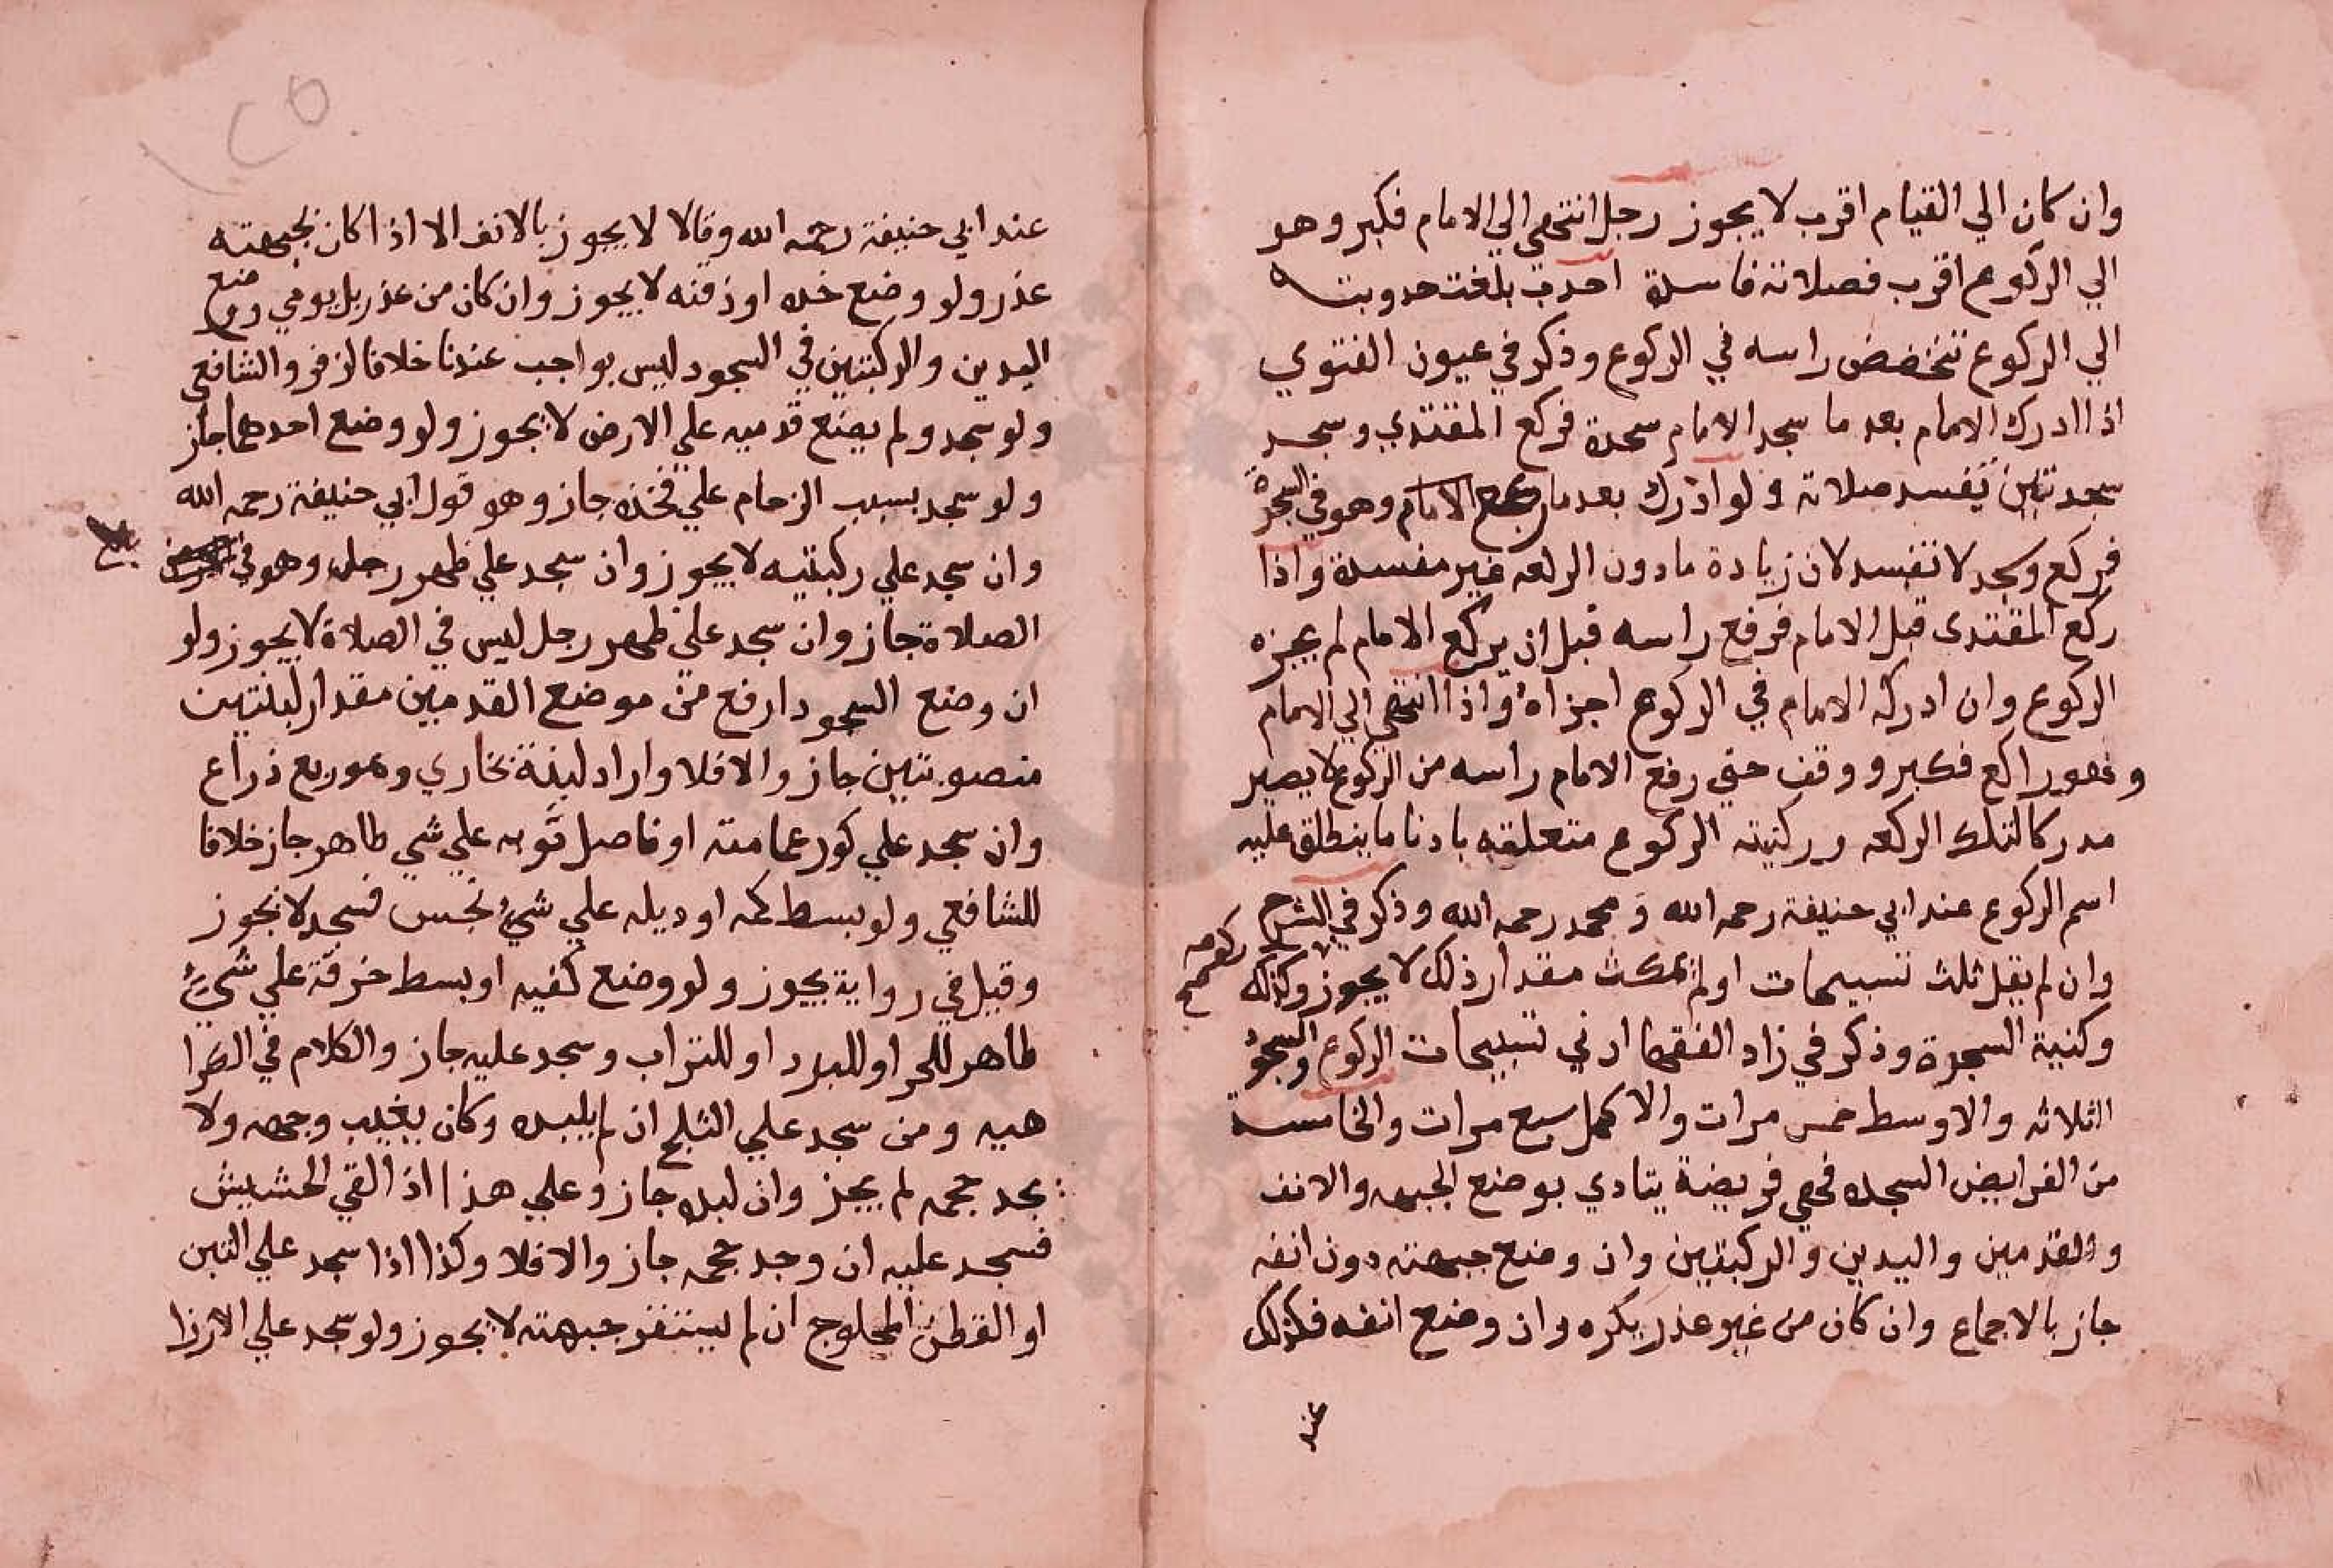 وان كان الي القيام اقرب لا يجوز رجل انتهي الي الامام فكبر وهو
الي الركوع اقرب فصلاته فاسدة احدب بلغت حدوبته
الي الركوع تخفض راسه في الركوع وذكر في عيون الفتوي
اذا ادرك الامام بعد ما سجد الامام سجدة فركع المقتدي وسجد
سجدتين تفسد صلاته ولو ادرك بعد ما ركع الامام وهو في السجدة
فركع وسجد لا تفسد لان زيادة مادون الركعه غير مفسدة واذا
ركع المقتدى قبل الامام فرفع راسه قبل ان يركع الامام لم يجزه
الركوع وان ادركه الامام في الركوع اجزاه واذا انتهي الي الامام
وهو راكع فكبر ووقف حتي رفع الامام راسه من الركوع لا يصير
مدركا لتلك الركعه وركنيته الركوع متعلقه بادنا ما ينطلق عليه
اسم الركوع عند ابي حنيفة رحمه الله و محمد رحمه الله وذكر في الشرح
وان لم يقل ثلث تسبيحات او لم يمكث مقدار ذلك لا يجوز وكذلك
ركوعه صح
وكنية السجدة وذكر في زاد الفقها ادني تسبيحات الركوع والسجود
الثلاثه والاوسط خمس مرات والاكمل سبع مرات والخامسة
من الفرايض السجده فهي فريضة يتادي بوضع الجبهه والانف
والقدمين واليدين والركبتين وان وضع جبهته دون انفه
جاز بالاجماع وان كان من غير عذر يكره وان وضع انفه فكذلك
عند
عند ابي حنيفة رحمه الله وقالا لا يجوز بالانف الا اذا كان بجبهته
عذر ولو وضع خده او ذقنه لا يجوز وان كان من عذر بل يومي ووضع
اليدين والركبتين في السجود ليس بواجب عندنا خلافا لزفر والشافعي
ولو سجد ولم يضع قدميه علي الارض لا يجوز ولو وضع احدهما جاز
ولو سجد بسبب الزحام علي فخذه جاز وهو قول ابي حنيفة رحمه الله
وان سجد علي ركبتيه لا يجوز وان سجد علي ظهر رجل وهو في
الصلاة جاز وان سجد علي ظهر رجل ليس في الصلاة لا يجوز ولو
ان وضع السجود ارفع من موضع القدمين مقدار لبنتين
منصوبتين جاز والا فلا واراد لبنة بخاري وهو ربع ذراع
وان سجد علي كور عمامته او فاصل ثوبه علي شي طاهر جاز خلافا
للشافعي ولو بسط كمه او ديله علي شيء نجس فسجد لا يجوز
وقيل في رواية يجوز ولو وضع كفيه او بسط خرقة علي شيء
طاهر للحر او للبرد او للتراب وسجد عليه جاز والكلام في الكرا
هيه ومن سجد علي الثلج ان لم يلبده وكان يغيب وجهه ولا
يجد حجمه لم يجز وان لبده جاز وعلي هذا اذا القي الحشيش
فسجد عليه ان وجد حجمه جاز والا فلا وكذا اذا سجد علي التبن
او القطن المحلوج ان لم يستقر جبهته لا يجوز ولو سجد علي الارز